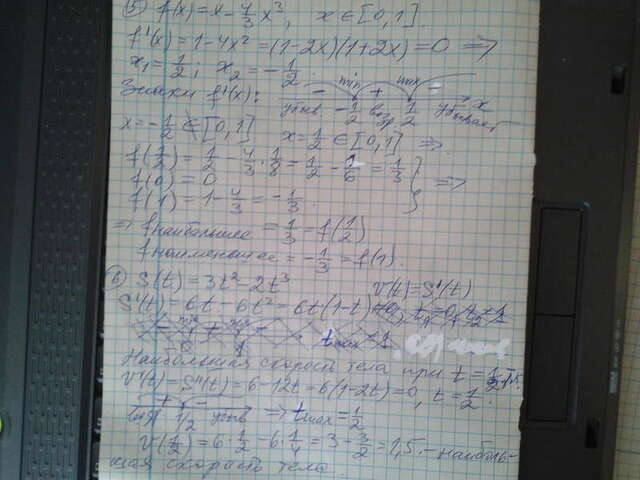 5) f(x) = x - 4/3 x³, x ∈ [0,1].
f'(x) = 1 - 4x² = (1-2x)(1+2x) = 0 ⇒
x₁ = 1/2; x₂ = -1/2.
Знаки f'(x): - min + max -
убыв -1/2 возр 1/2 убывает x
x = -1/2 ∉ [0,1] x = 1/2 ∈ [0,1] ⇒
f(1/2) = 1/2 - 4/3 · 1/8 = 1/2 - 1/6 = 1/3
f(0) = 0
f(1) = 1 - 4/3 = -1/3.
⇒ fнаибольшее = 1/3 = f(1/2)
fнаименьшее = -1/3 = f(1).
6) S(t) = 3t² - 2t³ V(t) = S'(t)
S'(t) = 6t - 6t² = 6t(1-t)
Наибольшая скорость тела при t =
V'(t) = S''(t) = 6 - 12t = 6(1-2t) = 0, t = 1/2
+ -
1/2 убыв ⇒ tmax = 1/2
V(1/2) = 6 · 1/2 - 6 · 1/4 = 3 - 3/2 = 1,5. - наиболь-
шая скорость тела.